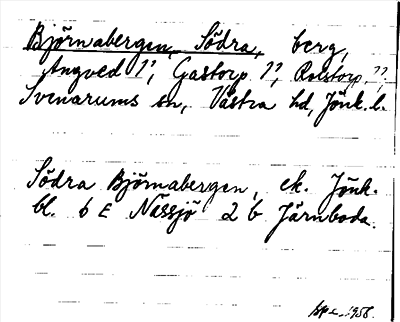 Björnabergen, Södra, berg,
Angved 1⁷, Gastorp 1⁷, Rolstorp, ⁷⁷,
Svenarums sn, Västra hd, Jönk. l.
Södra Björnabergen, ek. Jönk.
bl. 6 E Nässjö 2 b Järnboda.
1958.